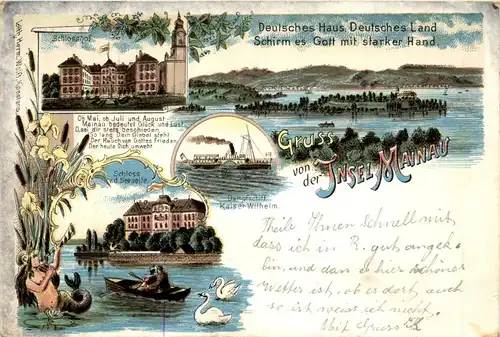 Deutsches Haus, Deutsches Land
Schirm es Gott mit starker Hand.
Schlosshof.
Ob Mai, ob Juli und August
Mainau bedeutet Glück und Lust,
Das
dir stets beschieden
So lang Dein Giebel steht
Der Hauch von Gottes Frieden
Der heute Dich umweht.
Gruss
von
der INSEL MAINAU
Schloss
v. d. Seeseite.
Dampfschiff
Kaiser Wilhelm.
Theile Ihnen Schnell mit,
dass ich in R. gut angek.
bin, und dass es hier schöner
Wetter ist, ob es dort, auch
so ist weiss ich nicht.
Mit Gruss